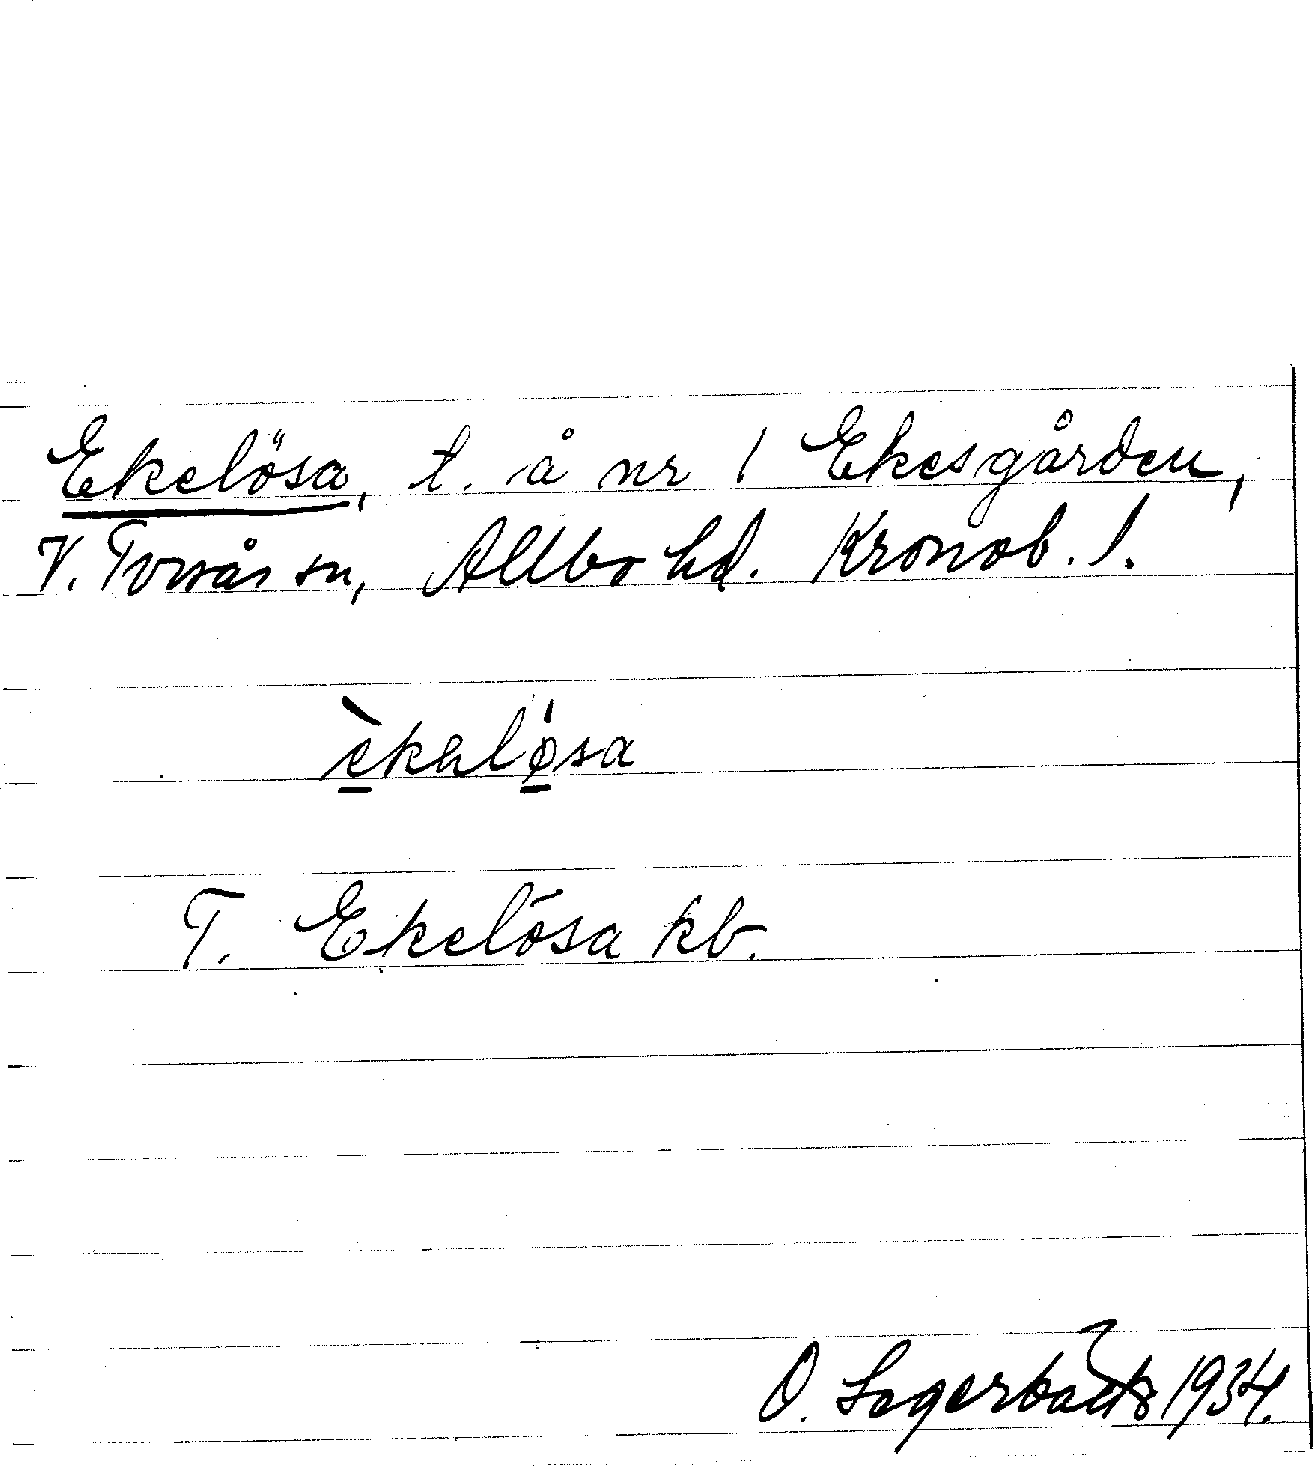 Ekelösa, t. å nr 1 Ekesgården,
V. Torsås sn, Allbo hd. Kronob. l.
èkəlø̀sa
T. Ekelösa kb.
O. 1934.